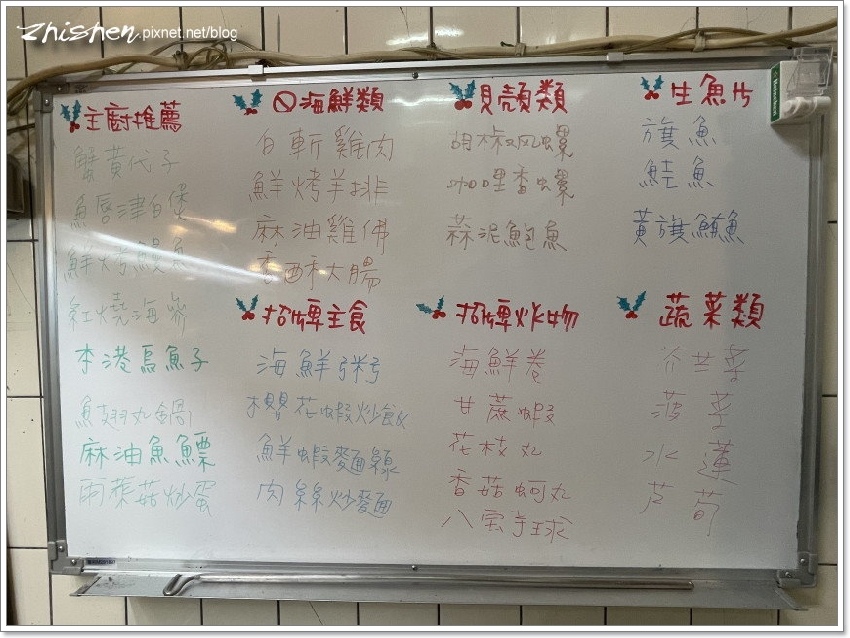 zhishen.pixnet.net/blog
主廚推薦
蟹黃代子
魚唇津白煲
鮮烤鰻魚
紅燒海參
本港烏魚子
魚翅丸鍋
麻油魚鰾
雨來菇炒蛋
海鮮類
白斬雞肉
鮮烤羊排
麻油雞佛
香酥大腸
貝殼類
胡椒风螺
咖哩香螺
蒜泥鮑魚
生魚片
旗魚
鮭魚
黃旗鮪魚
招牌主食
海鮮粥
櫻花蝦炒飯
鮮蝦麵線
肉絲炒麵
招牌炸物
海鮮卷
甘蔗蝦
花枝丸
香菇蚵丸
八宝芋球
蔬菜類
菠菜
水蓮
芦筍